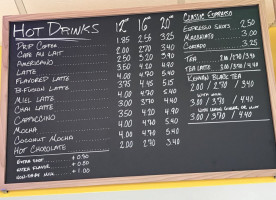 HOT DRINKS 12" 16" 20"
DRIP COFFEE 1.85 2.55 3.25
CAFE AU LAIT 2.00 2.70 3.40
AMERICANO 2.50 3.20 3.90
LATTE 3.50 4.20 4.90
FLAVORED LATTE 4.00 4.70 5.40
B-FUSION LATTE 3.75 4.45 5.15
MIEL LATTE 4.00 4.70 5.40
CHAI LATTE 3.00 3.70 4.40
CAPPACCINO 3.50 4.20 4.90
MOCHA 4.00 4.70 5.40
COCONUT MOCHA 4.00 4.70 5.40
HOT CHOCOLATE 2.00 2.70 3.40
EXTRA SHOT + 0.80
EXTRA FLAVOR + 0.50
NON-DAIRY MILK + 1.00
CLASSIC ESPRESSO
ESPRESSO SHOTS 2.50
MACCHIATO 3.00
CORTADO 3.25
TEA 2.00/2.70/3.40
TEA LATTE 3.00/3.70/4.40
KENYAN BLACK TEA
2.00 / 2.70 / 3.40
WITH MILK
3.00 / 3.70 / 4.40
3.00 / 3.70 / 4.40